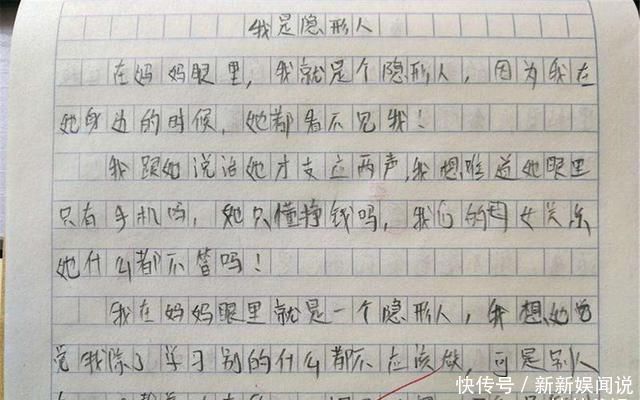 我是隐形人
在妈妈眼里，我就是个隐形人，因为我在
她身边的时候，她都看不见我！
我跟她说话她才支应两声，我想难道她眼里
只有手机吗，她只懂挣钱吗，我们的母女关系
她什么都不管吗！
我在妈妈眼里就是一个隐形人，我想她觉
觉我除了学习别的什么都不应该做，可是别人
快传号／新新娱闻说